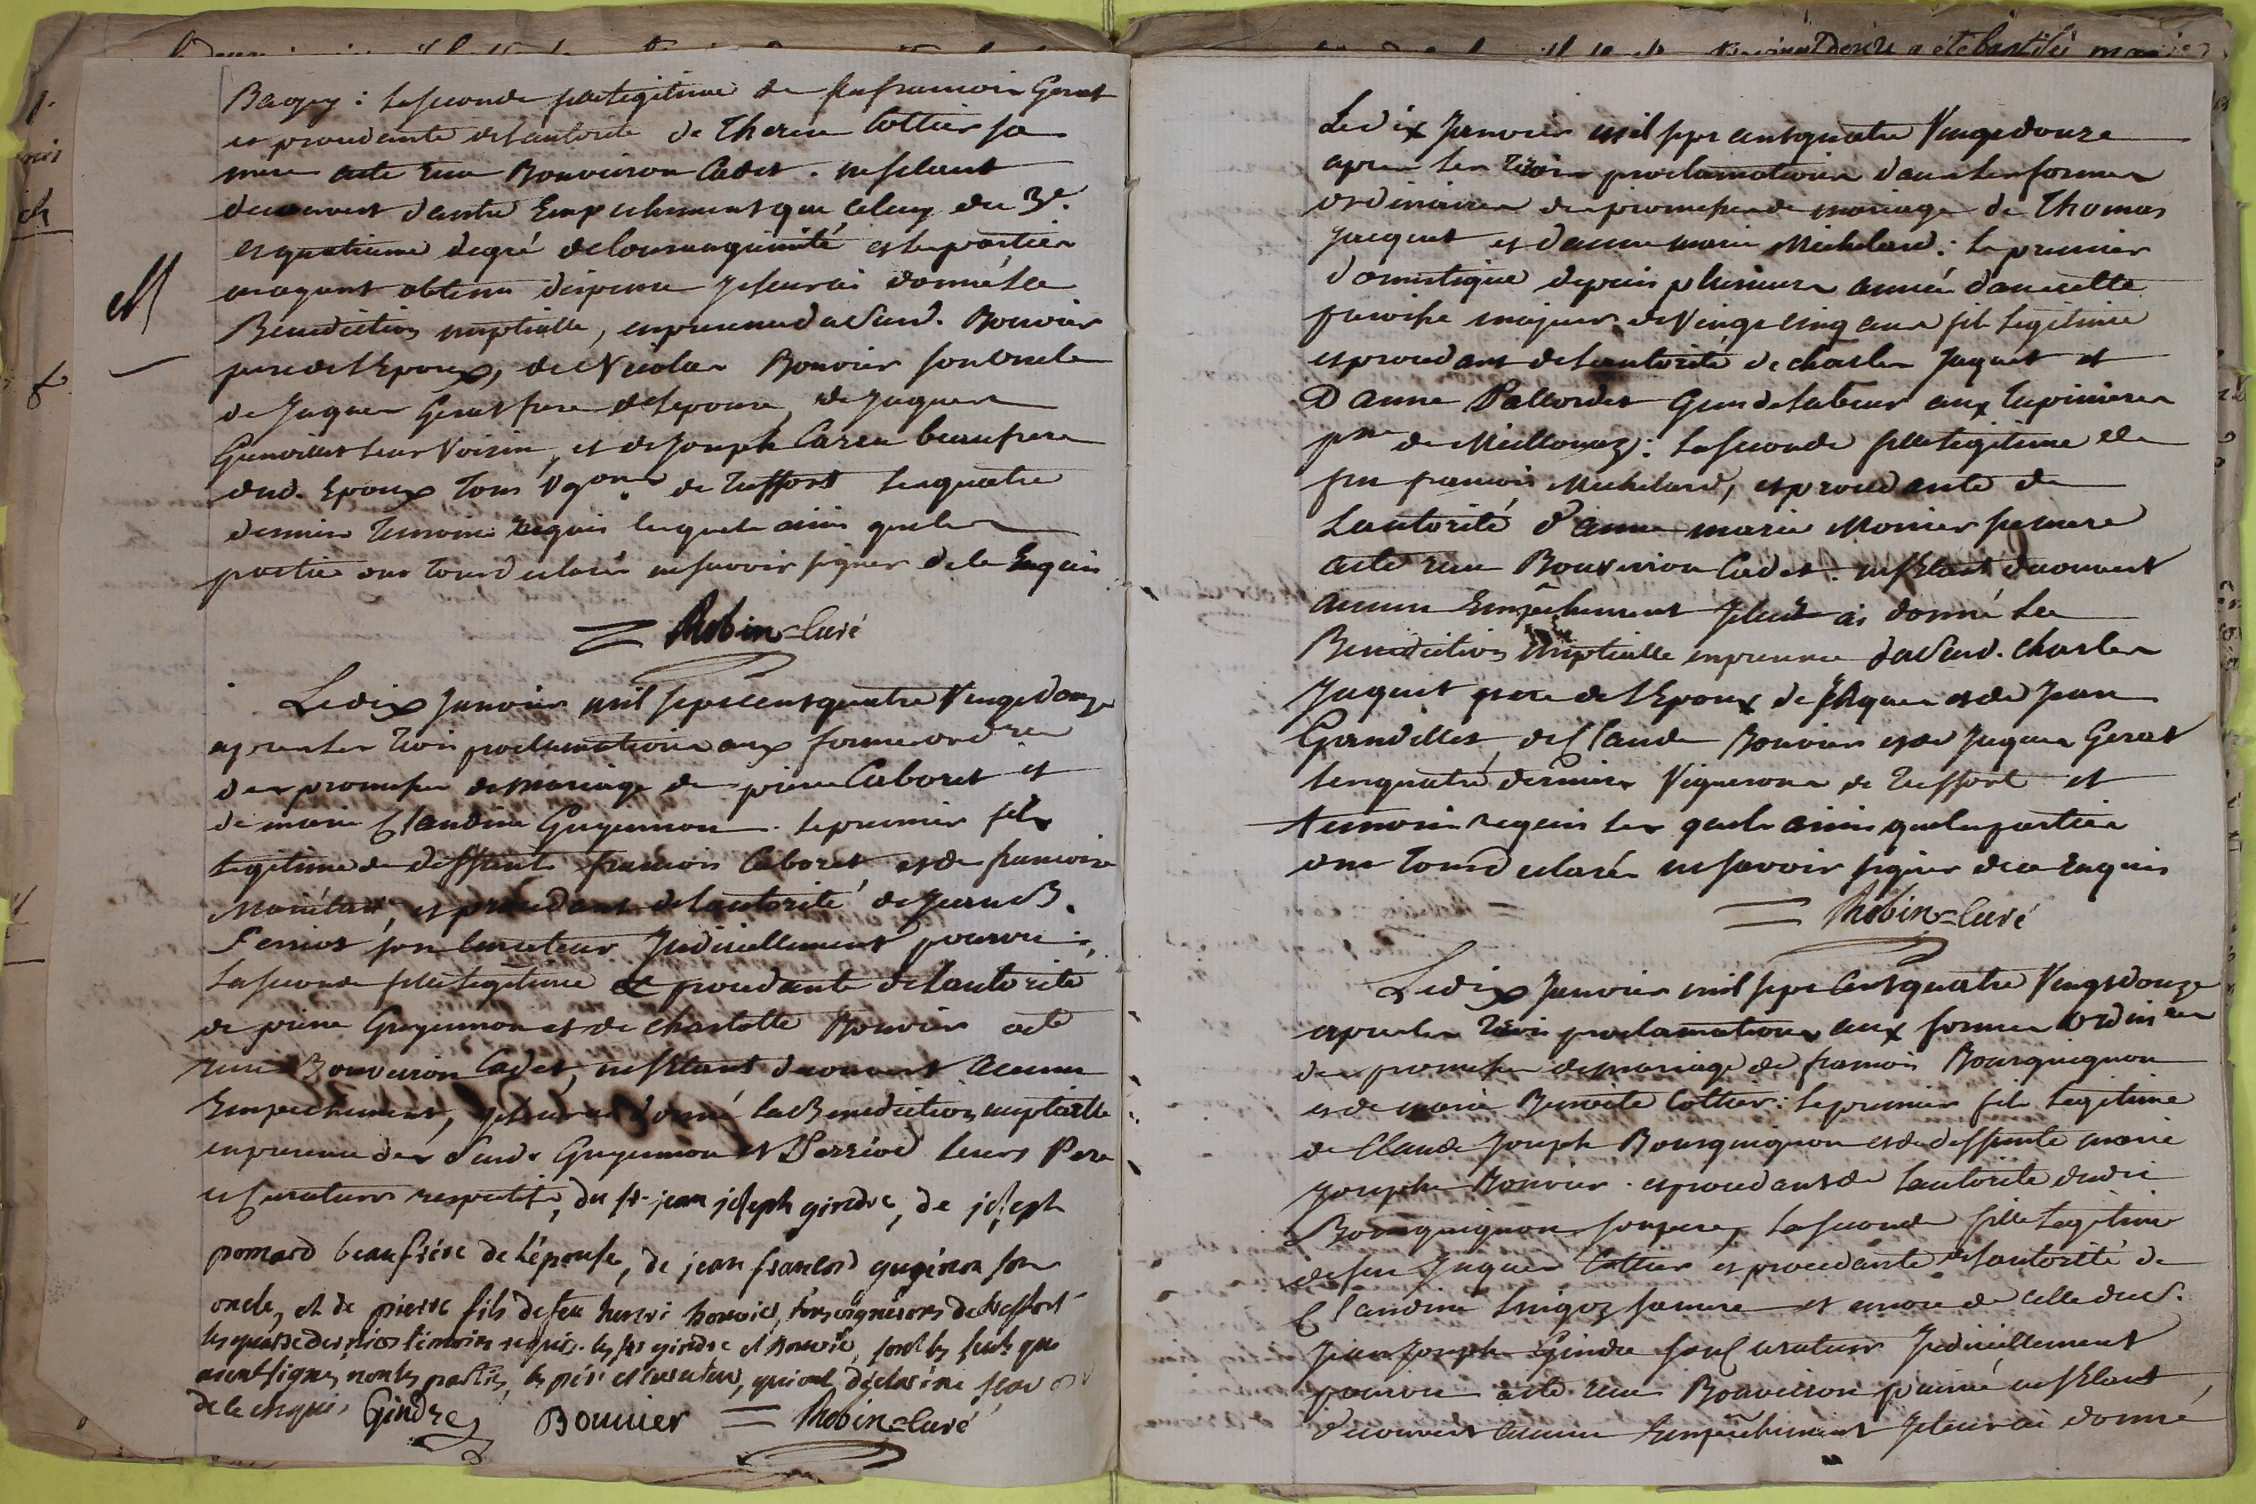 Bagey : la seconde fille legitime de feu francois Gerat
et procedante de lautorite de Therese Cottier sa
mere acte reçu Bouveiron Cadet . ne setant
decouvert dautre Empechement que celuy du 3e.
et quatrieme degré de Consanguinité et les parties
en ayant obtenu dispense Je leur ai donné la
Benediction nuptialle, en presence dud. Bouvier
pere de l'Epoux, de Nicolas Bouvier son oncle
de Jaques Gerat frere de lepouse, de Jaques
leur Voisin, et de Joseph Carra beaufrere
dud. Epoux tous Vgons de treffort les quatre
derniers temoins requis lesquels ainsi que les
parties ont tous declarés ne savoir signer de ce Enquis
= Robin Curé
Le dix Janvier mil sept cent quatre Vingt Douze
apres les trois proclamations aux formes ordres
des promesses de mariage de pierre Caboret et
de marie Claudine Guyennon . le premier fils
legitime de deffunt francois Caboret et de francoise
et procedant de lautorité de Jean B.
ferriot son Curateur Judiciellement pourvu :
la seconde fille legitime et procedante de lautorite
de pierre Guyennon et de charlotte Bouvier acte
reçu Bouveiron Cadet, ne setant decouvert aucun
Empechement, je leur ai donné la Benediction nuptialle
en presence des dud. Guyennon et ferriot leurs Pere
et Curateur respectifs, du sr. jean joseph gindre, de joseph
pomard beaufrére de l'épouse, de jean francois guyénon son
oncle, et de pierre fils de feu henri bouvier, tous vignerons de treffort
les quatre derniers témoins requis. les srs gindre et Bouvier, sont les seuls qui
aient signes, non les parties, les pére et curateur, qui ont déclaré ne scavoir
de ce enquis, Gindre Bouvier = Robin Curé
Le dix Janvier mil sept cent quatre Vingt douze
apres les trois proclamations dans les formes
ordinaires des promesses de mariage de Thomas
Jacquet et danne marie Michelard : le premier
domestique depuis plusieurs années dans cette
paroisse majeur de Vingt cinq ans fils legitime
et procedant de lautorité de charles Jaquet et
D'anne Pallordet Grandelabeur aux tupinieres
psse de Meillonaz : la seconde fille legitime de
feu francois Michelard, et procedante de
lautorité d'anne marie Monier sa mere
acte reçu Bouveiron Cadet . ne setant decouvert
aucun Empêchement Je leur ai donné la
Benediction Nuptialle en presence dud. charles
Jaquet pere de l'Epoux de Jaques et de Jean
Grandillet, de Claude Bouvier et de Jaques Gerat
les quatre derniers Vignerons de treffort et
temoins requis lesquels ainsi que les parties
ont tous declarés ne savoir signer de ce Enquis
= Robin Curé
Le dix Janvier mil sept Cent quatre Vingt douze
apres les trois proclamations aux formes Ordinres
des promesses de mariage de francois Bourguignon
et de marie Benoite Cottier : le premier fils legitime
de Claude Joseph Bourguignon et de deffunte marie
Josephe Bouvier . et procedant de lautorite dudit
Bourguignon son pere, la seconde fille legitime
de feu Jaques Cottier et procedante de lautorité de
Claudine sa mere et encore de celle dud.
Jean Joseph Gindre son Curateur Judiciellement
pourvu acte reçu Bouveiron puiné ne setant
découvert aucun Empêchement Je leur ai donné